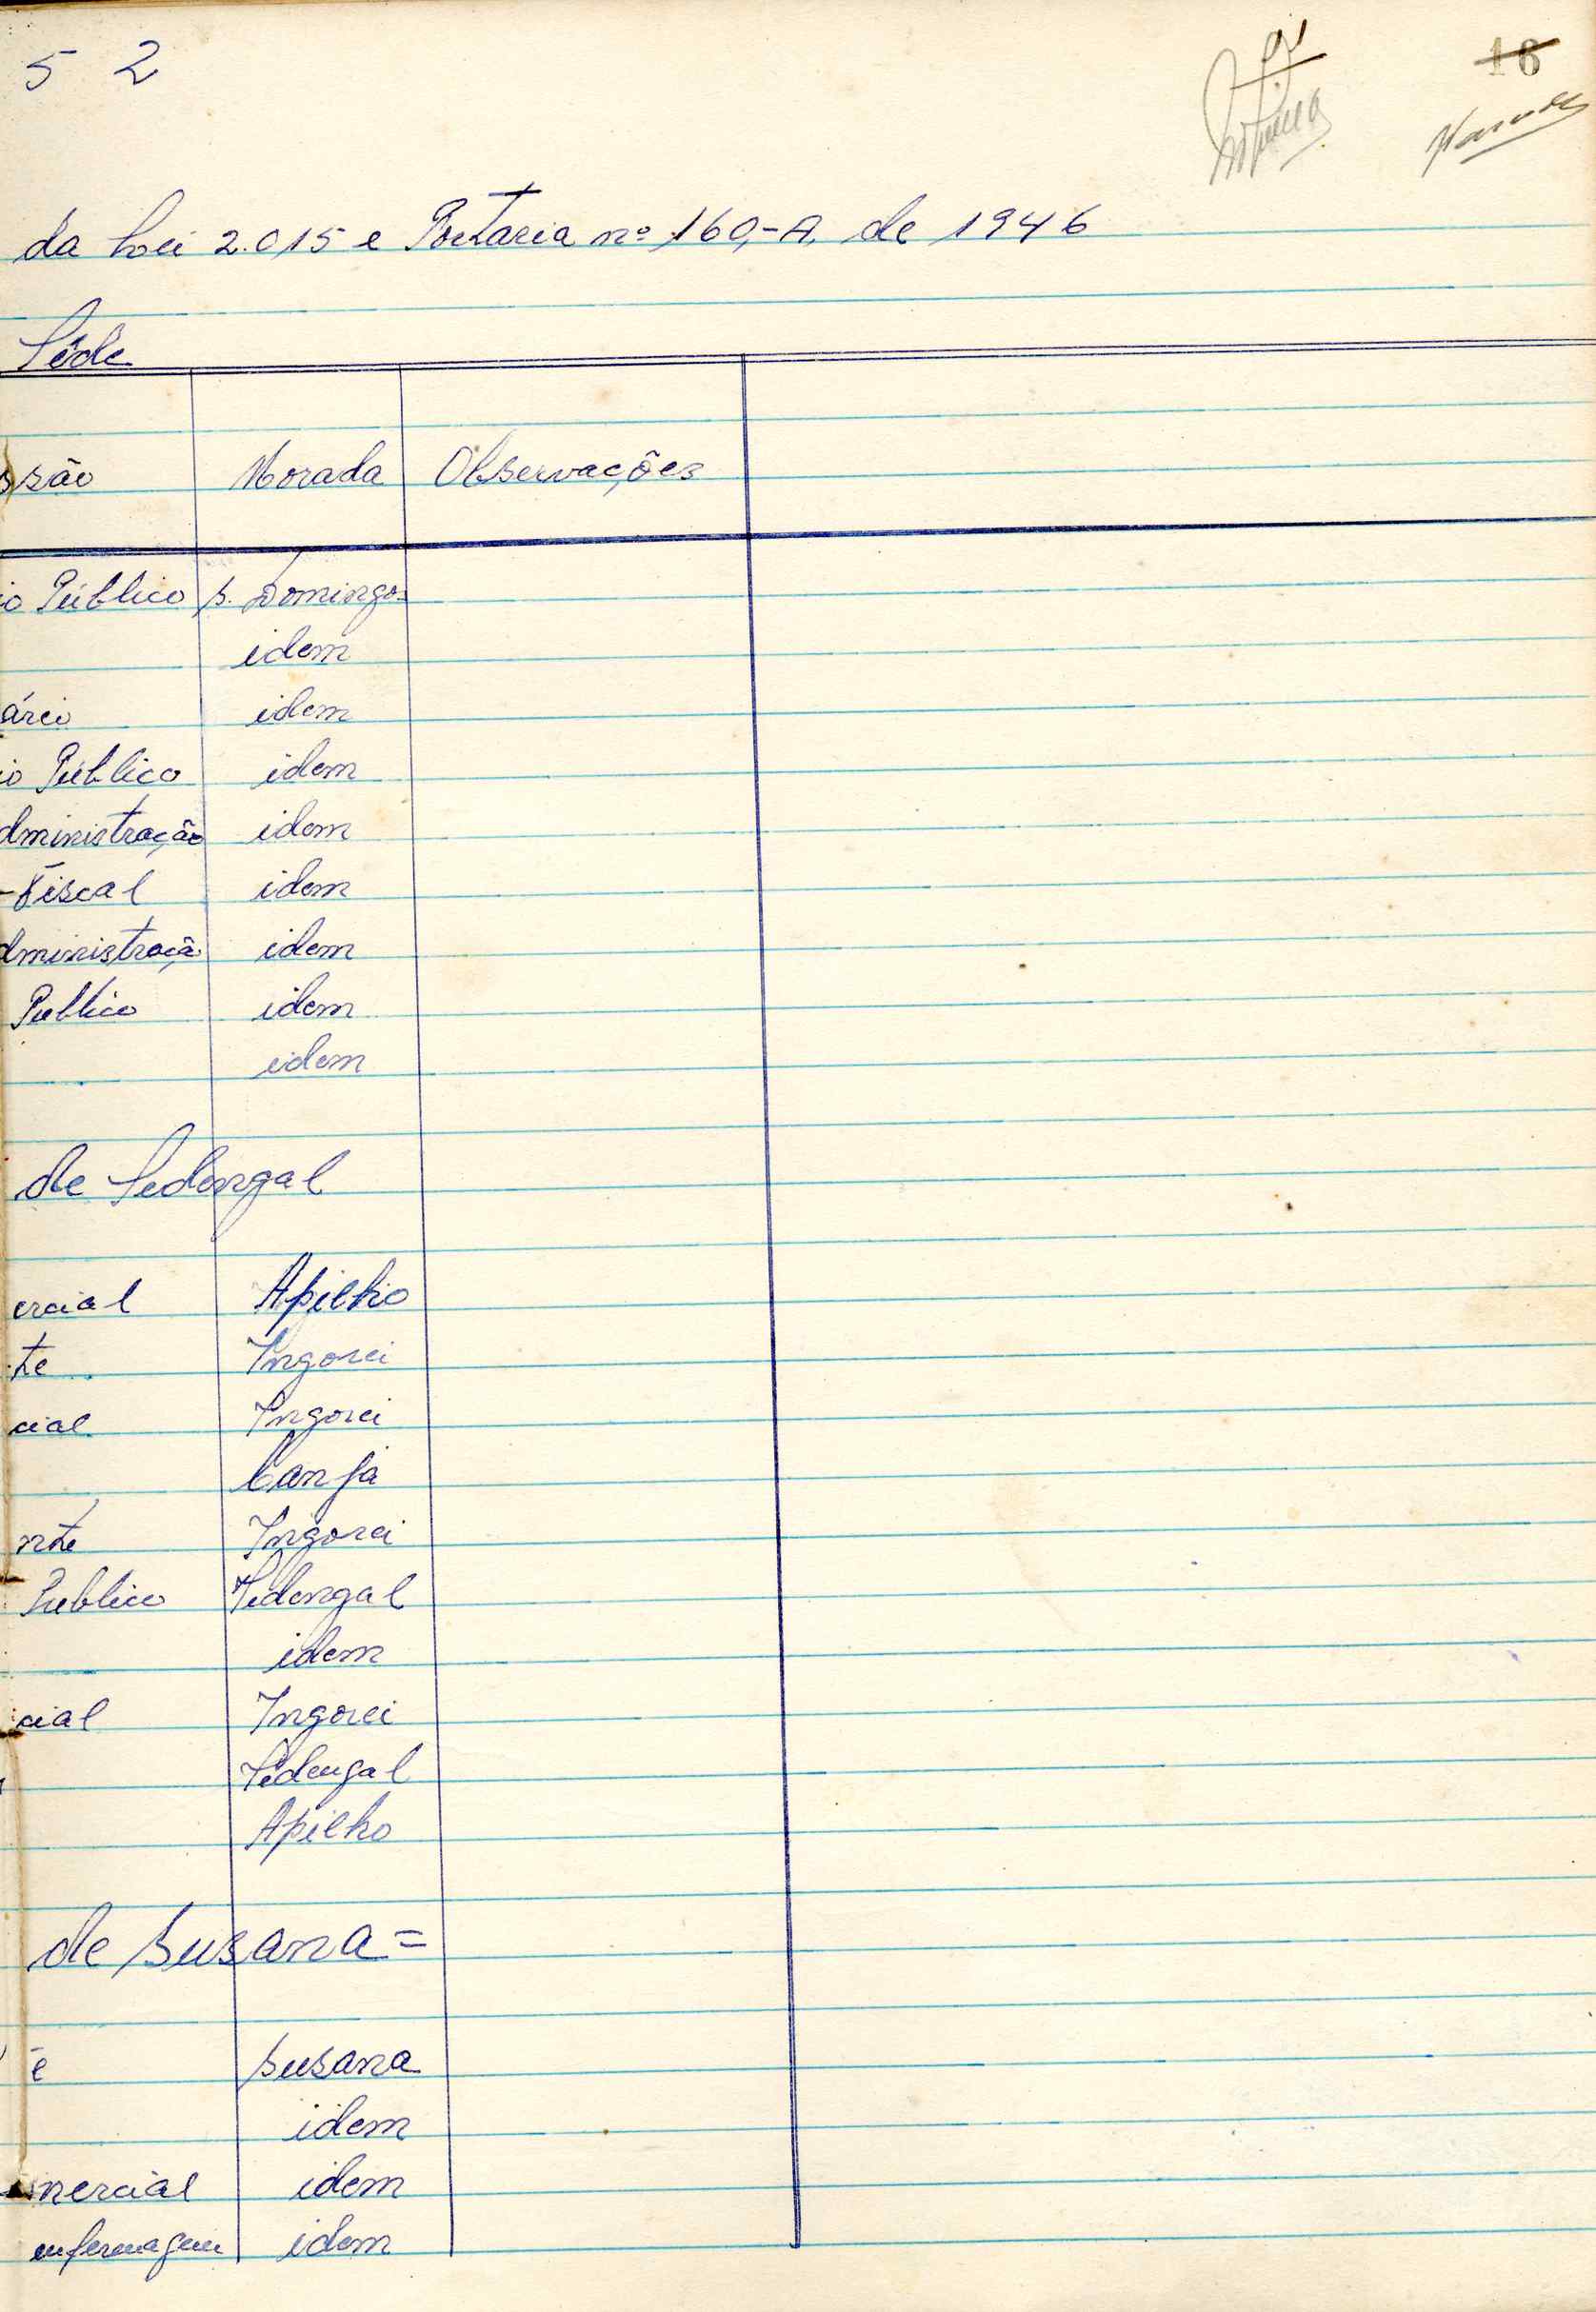 5 2
16
da Lei 2.015 e Portaria nº 160,-A, de 1946
Séde
ssão Morada Observações
io Público S. Domingos
idem
ário idem
io Público idem
dministração idem
-Fiscal idem
dministraçã idem
Publico idem
idem
de Sedengal
ercial Apilho
te Ingorei
cial Ingorei
Canja
nte Ingorei
Publico Sedengal
idem
cial Ingorei
Sedengal
Apilho
de Susana =
é Susana
idem
mercial idem
enfermagem idem